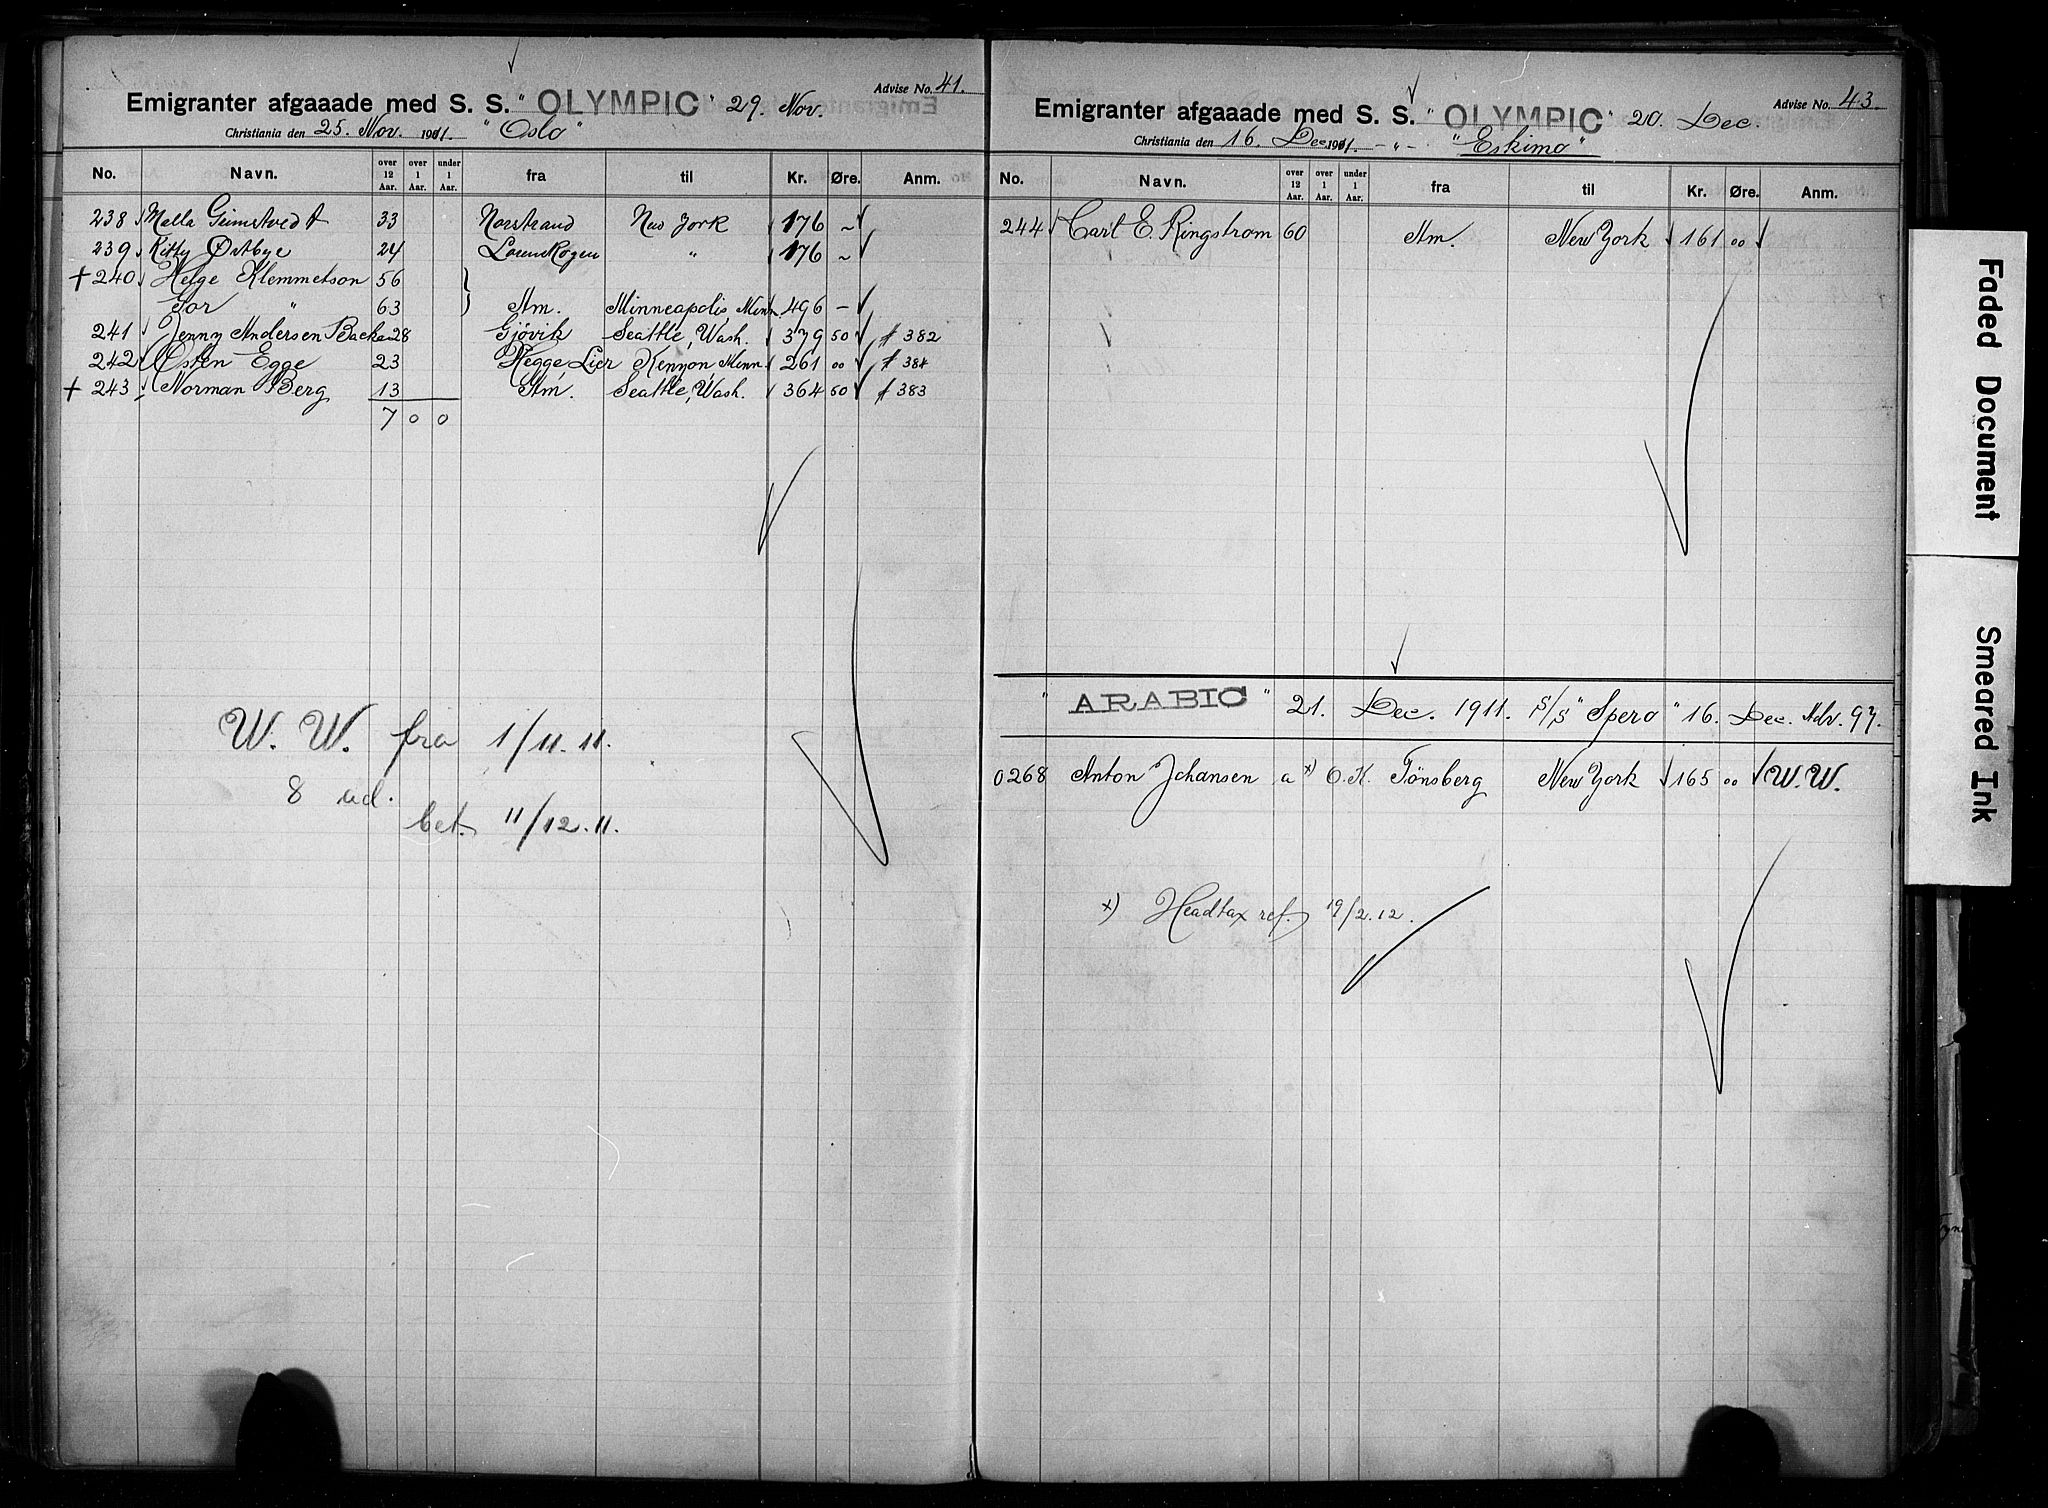 Advise No. 41.
Emigranter afgaaade med S. S. "OLYMPIC" 29. Nov.
Christiania den 25. Nov. 1911. "Oslo"
No. Navn. over 12 Aar. over 1 Aar. under 1 Aar. fra til Kr. Øre. Anm.
238 Malla Gimstvedt 33 Norstrand New York 176 ~
239 Kitty Østbye 24 Lorenskogen " 176 ~
+ 240 Helge Klemmetson 56
Gor " 63 Am. Minneapolis, Minn. 496 -
241 Jenny Andersen Backe 28 Gjövik Seattle, Wash. 379 50 # 382
242 Østen Egge 23 Hegge, Lier Kenyon Minn 261 00 # 384
+ 243 Norman Berg 13 Am. Seattle, Wash. 364 50 # 383
7 0 0
W. W. fra 1/11. 11.
8 ud.
bet. 11/12. 11.
Advise No. 43.
Emigranter afgaaade med S. S. "OLYMPIC" 20. Dec.
Christiania den 16. Dec. 1911. -"- "Eskimo"
No. Navn. over 12 Aar. over 1 Aar. under 1 Aar. fra til Kr. Øre. Anm.
244 Carl E. Ringstrom 60 Am. New York 161 00
"ARABIC" 21. Dec. 1911. S/S "Spero" 16. Dec. Adv. 97.
0268 Anton Johansen a x) O. K. Tönsberg New York 165 00 W. W.
x) Headtax ref. 19/2. 12.
Faded Document
Smeared Ink